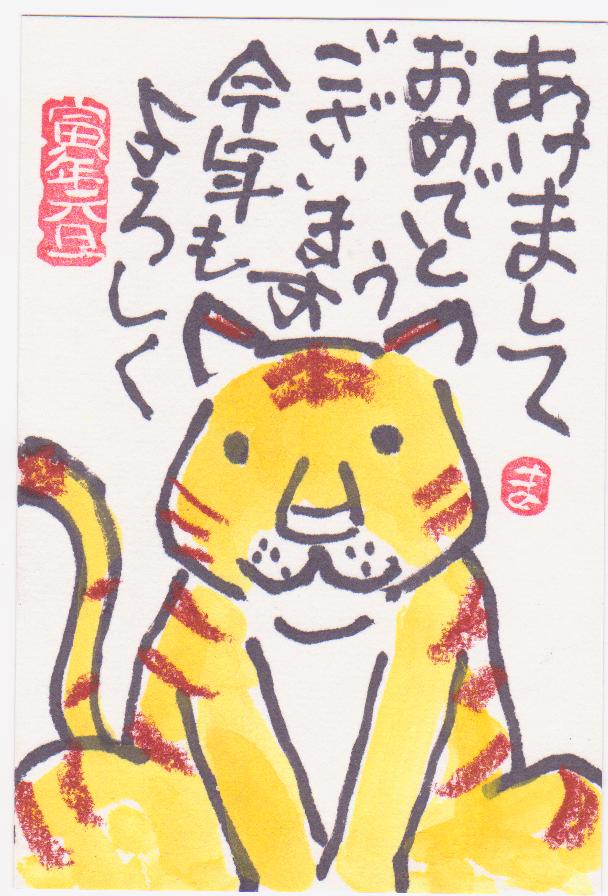 あけまして
おめでとう
ございます
今年も
よろしく
寅年元旦
ま